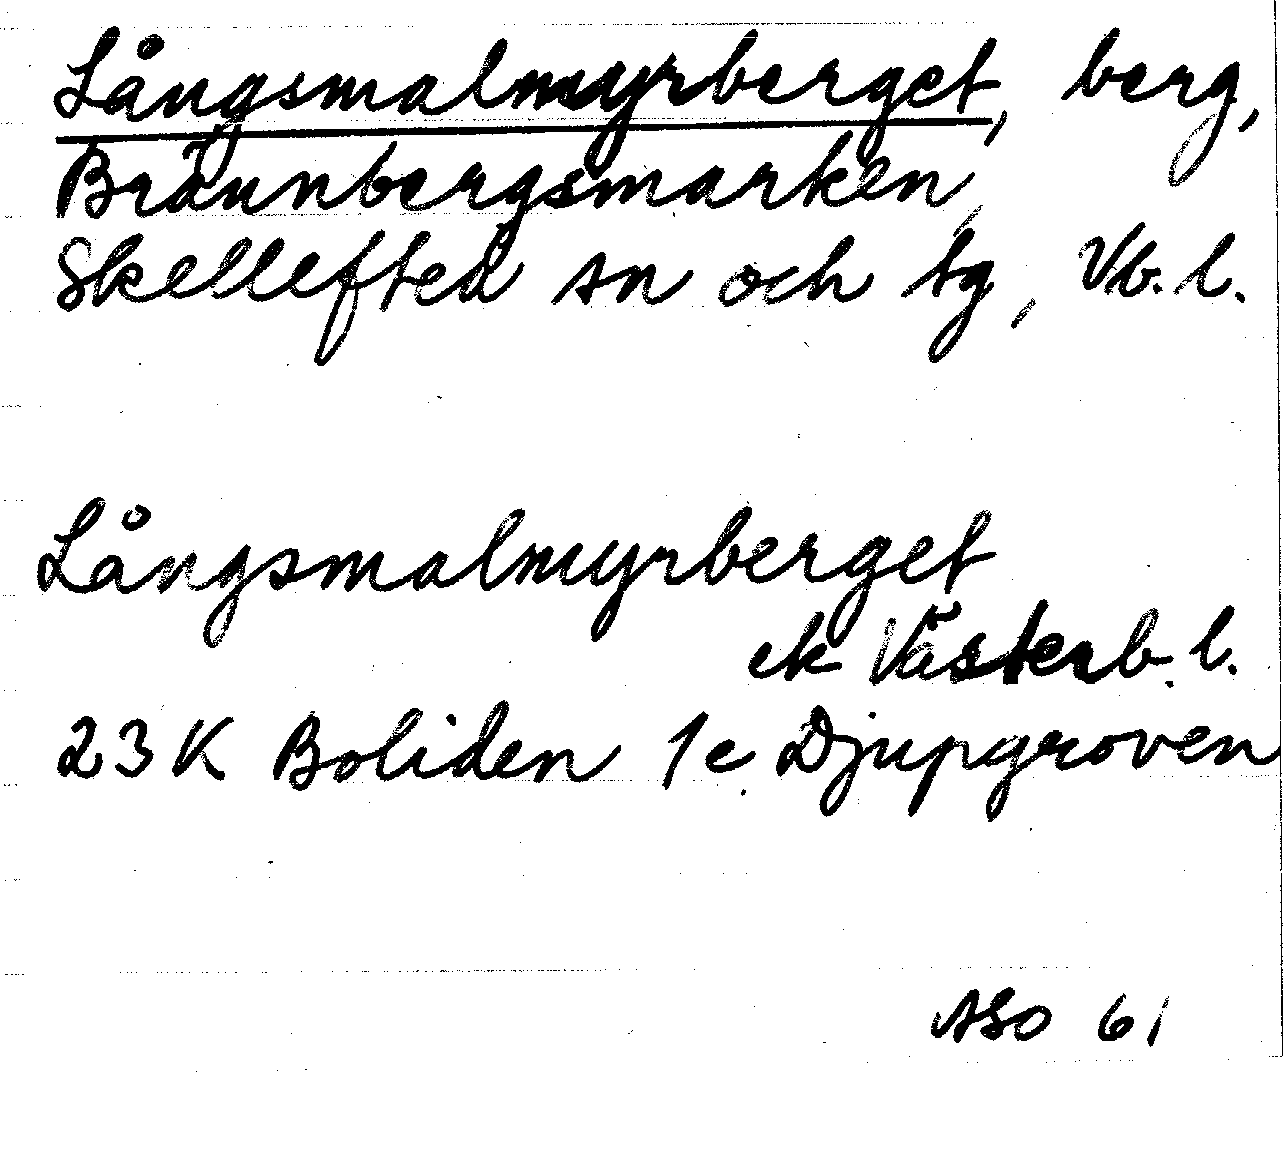 Långsmalmyrberget, berg,
Brännbergsmarken,
Skellefteå sn och tg, Vb. l.
Långsmalmyrberget
ek Västerb. l.
23 K Boliden 1e Djupgroven
ASO 61